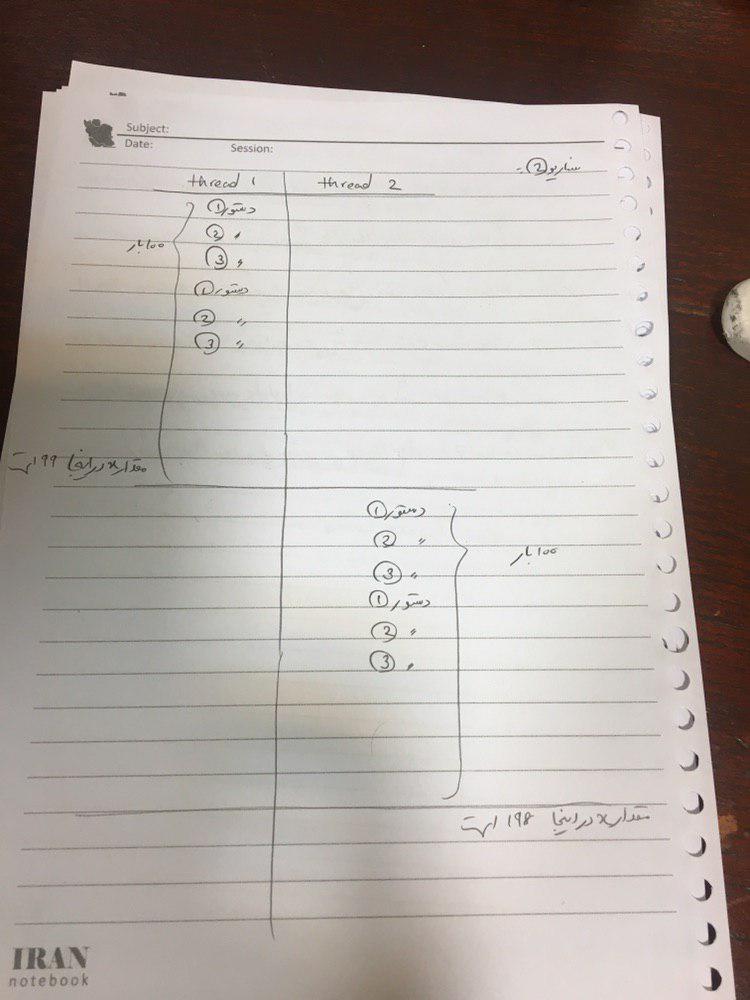 Subject:
Date: Session:
سناریو ② :-
thread 1 thread 2
دستور ①
② "
③ "
دستور ①
② "
③ "
۱۰۰ بار
مقدار x در اینجا 99 است
دستور ①
② "
③ "
دستور ①
② "
③ "
۱۰۰ بار
مقدار x در اینجا 198 است
IRAN
notebook